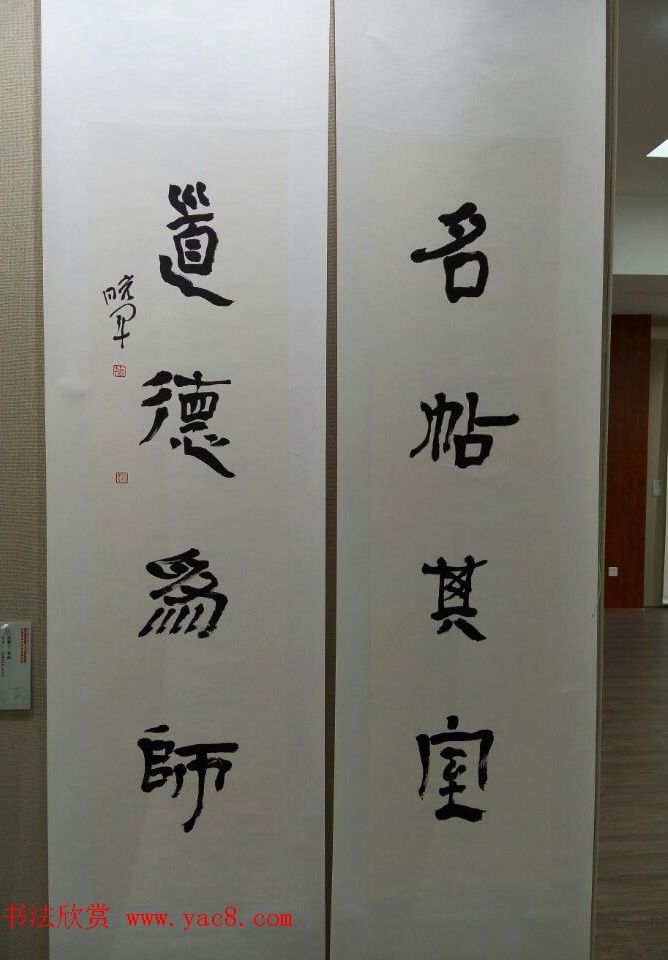 名帖其室
道德为師
书法欣赏 www.yac8.com